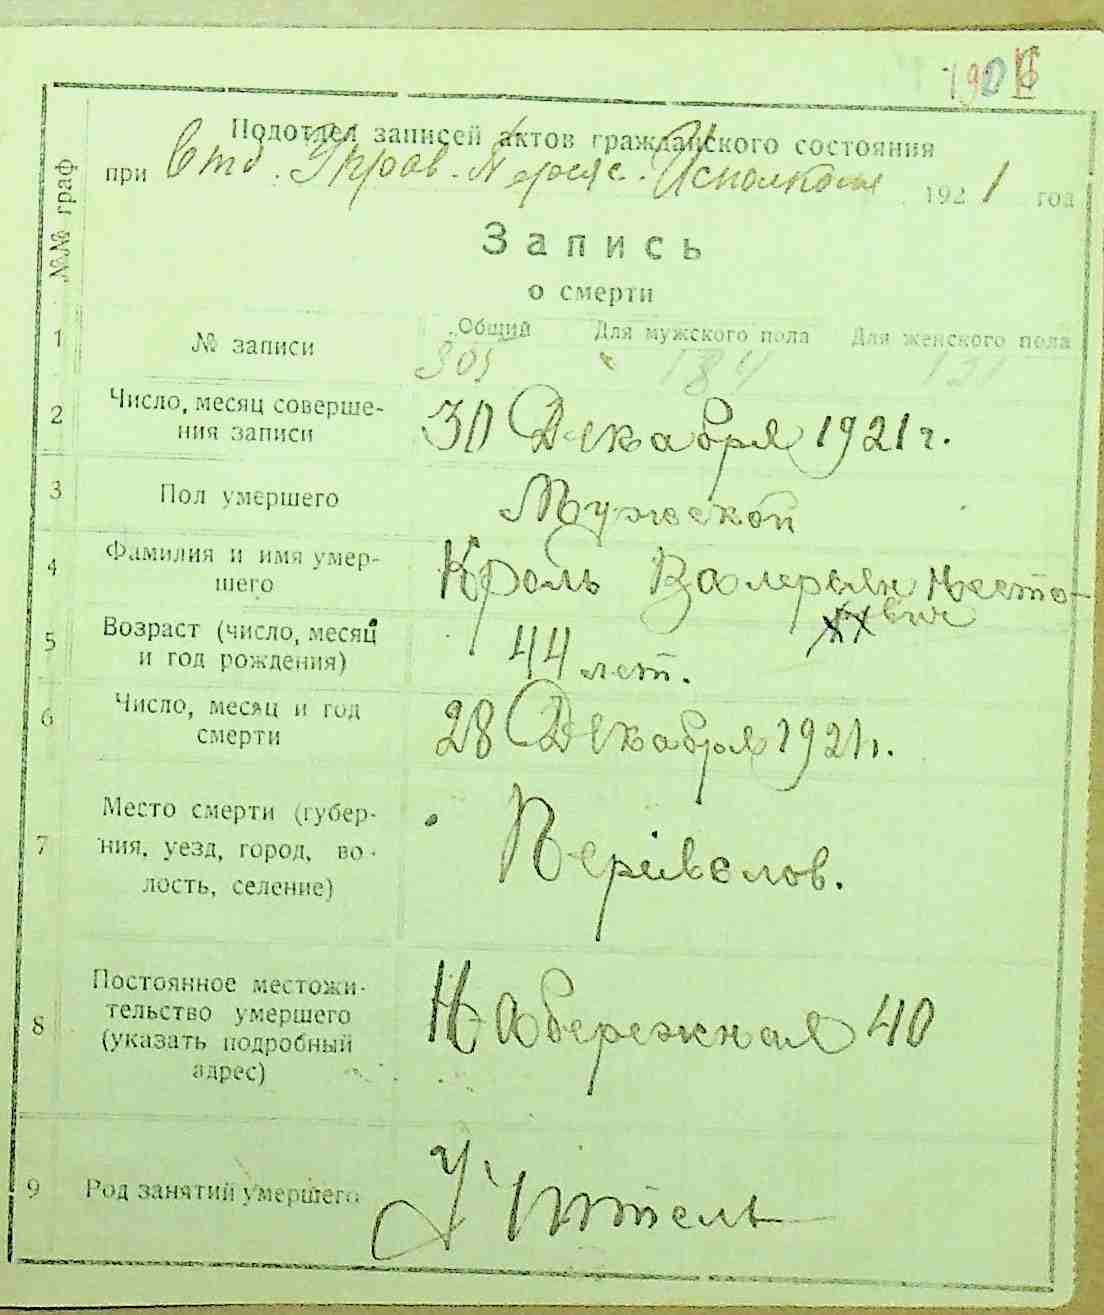 Подотдел записей актов гражданского состояния
при Отд. Управ. Исполкома 1921 год
№№ граф
Запись
о смерти
1 № записи Общий Для мужского пола Для женского пола
305 184 121
2 Число, месяц соверше-
ния записи
30 Декабря 1921 г.
3 Пол умершего Мужской
4 Фамилия и имя умер-
шего
Кроль Валерьян
вич
5 Возраст (число, месяц
и год рождения)
44 лет.
6 Число, месяц и год
смерти
28 Декабря 1921 г.
7 Место смерти (губер-
ния, уезд, город, во-
лость, селение)
8 Постоянное местожи-
тельство умершего
(указать подробный
адрес)
Набережная 40
9 Род занятий умершего Учитель